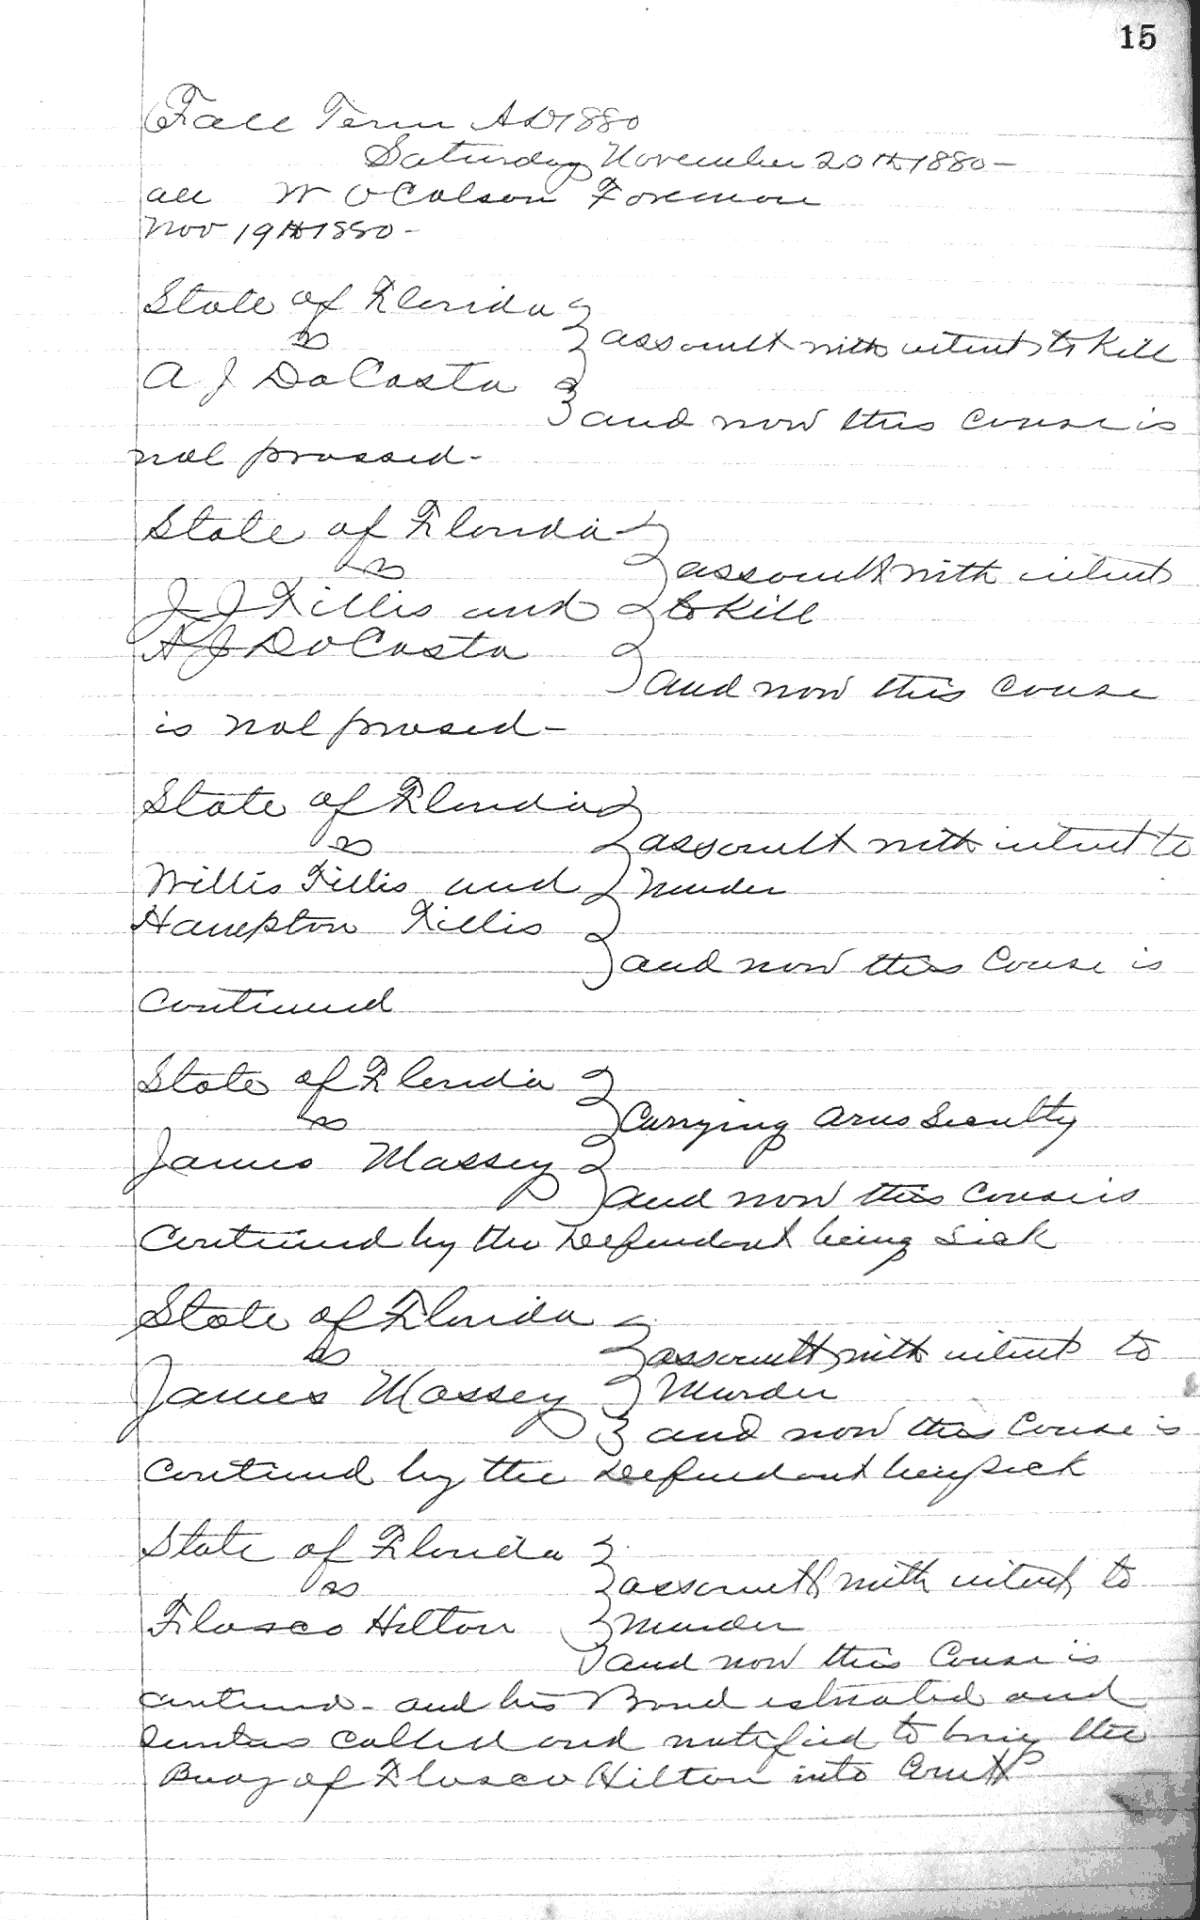 15
Fall Term AD 1880
Saturday November 20th 1880 —
all W O Colson Foreman
Nov 19th 1880 -
State of Florida
vs
assault with intent to Kill
A J DaCosta
and now this Couse is
nol prossed -
State of Florida
vs
assault with intent
J J Fillis and
to Kill
A J DaCosta
and now this Couse
is nol prosed —
State of Florida
vs
assault with intent to
Willis Fillis and
Murder
Hampton Fillis
and now this Couse is
Continued
State of Florida
vs
Carrying arms
James Massey
and now this Couse is
Continued by the Defendant being Sick
State of Florida
vs
assault with intent to
James Massey
Murder
and now this Couse is
Continud by the Defendant being sick
State of Florida
vs
assault with intent to
Flosco Hilton
Murder
and now this Couse is
continud - and his Bond estreated and
called and notified to bring the
Body of Flosco Hilton into Court